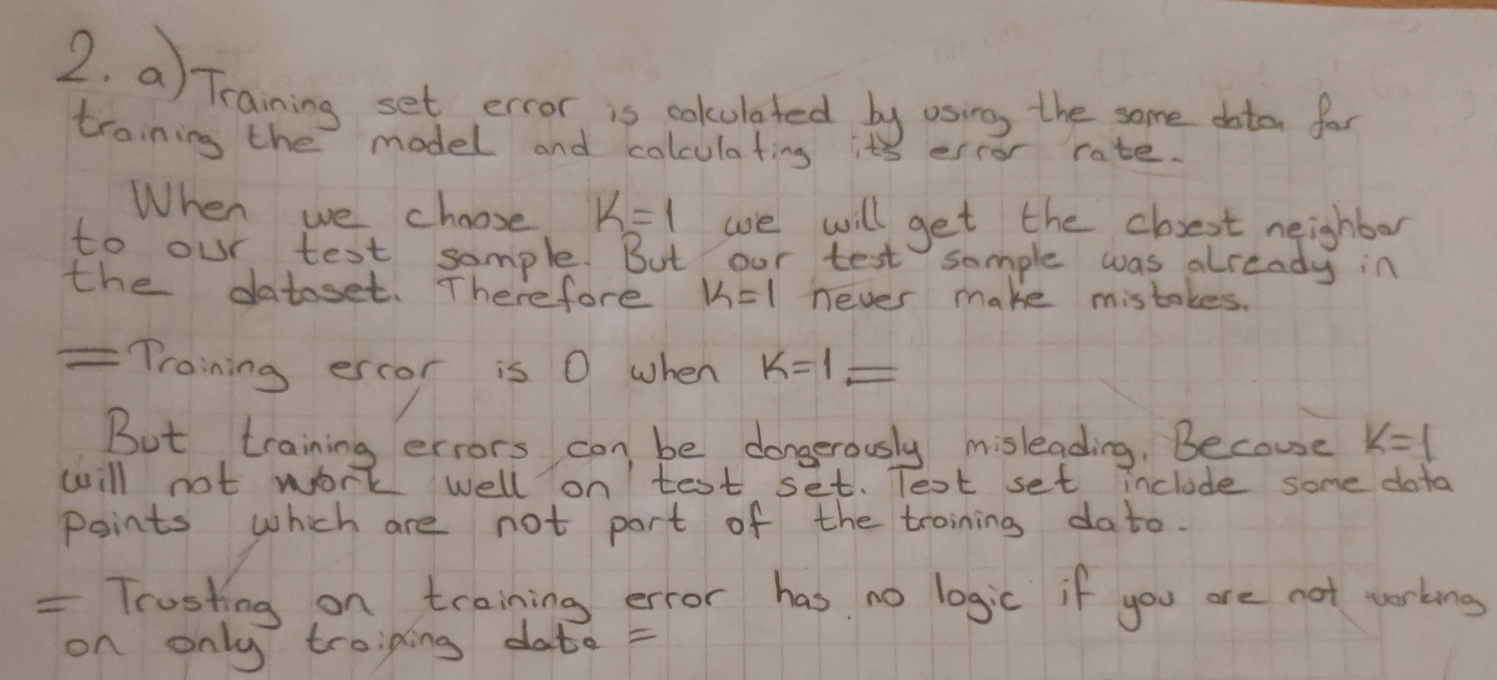 2. a) Training set error is calculated by using the same data for
training the model and calculating its error rate.
When we choose K=1 we will get the closest neighbor
to our test sample. But our test sample was already in
the dataset. Therefore K=1 never make mistakes.
= Training error is 0 when K=1 =
But training errors can be dangerously misleading. Because K=1
will not work well on test set. Test set include some data
points which are not part of the training data.
= Trusting on training error has no logic if you are not working
on only training data =